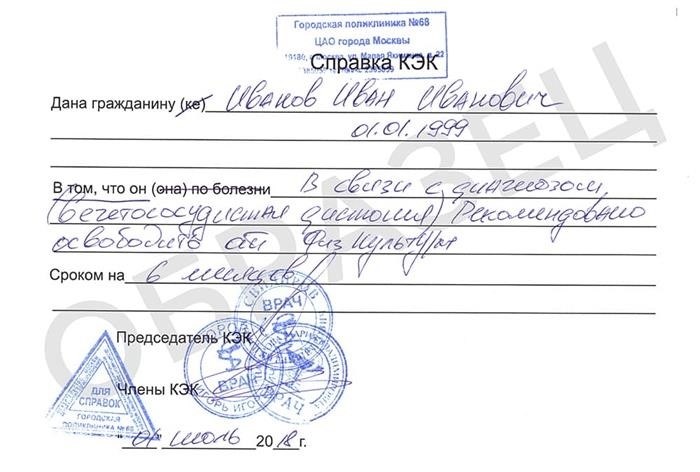 Городская поликлиника №68
ЦАО города Москвы
Справка КЭК
Дана гражданину (ке) Иванов Иван Иванович
01.01.1999
В том, что он (она) по болезни В связи с диагнозом
(вегетососудистая дистония) Рекомендовано
освободить от физкультуры
Сроком на 6 месяцев
ОБРАЗЕЦ
Председатель КЭК
ВРАЧ
Члены КЭК
ВРАЧ
ВРАЧ
ДЛЯ
СПРАВОК
ГОРОДСКАЯ
ПОЛИКЛИНИКА №68
"01" июль 2018г.